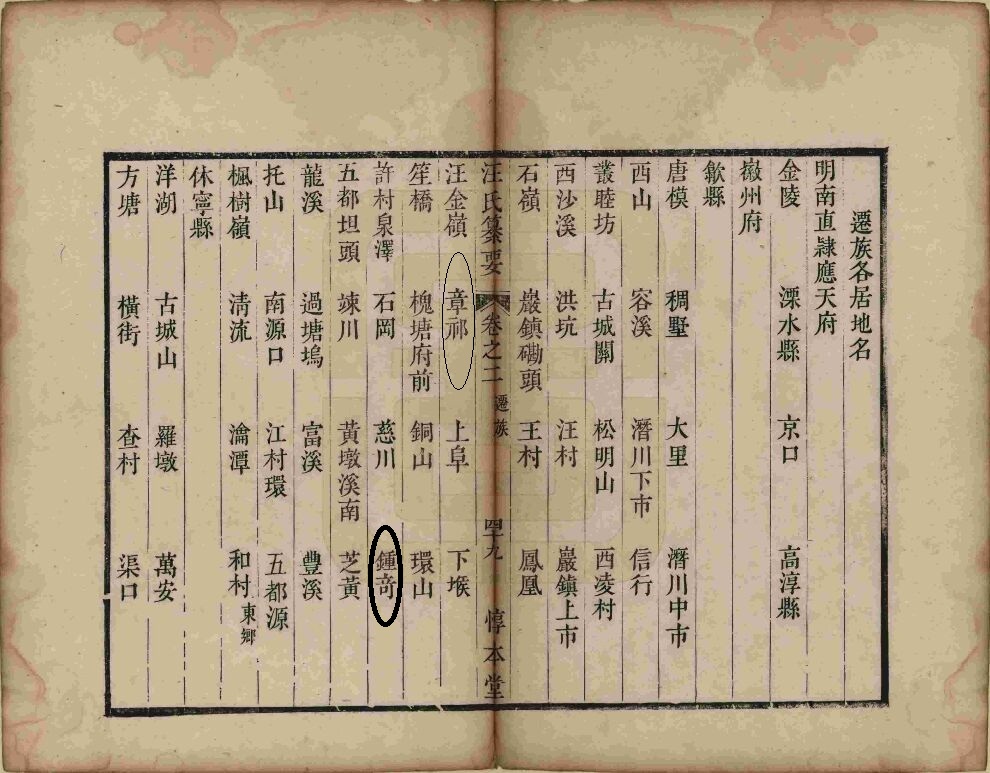 遷族各居地名
明南直隷應天府
金陵 溧水縣 京口 高淳縣
徽州府
歙縣
唐模 稠墅 大里 潛川中市
西山 容溪 潛川下市 信行
叢睦坊 古城關 松明山 西淩村
西沙溪 洪坑 汪村 巖鎮上市
石嶺 巖鎮磡頭 王村 鳳凰
汪氏纂要 卷之二 遷族 四十九 惇本堂
汪金嶺 章祁 上阜 下堠
笙橋 槐塘府前 銅山 環山
許村泉澤 石岡 慈川 鍾奇
五都坦頭 竦川 黃墩溪南 芝黃
龍溪 過塘塢 富溪 豐溪
托山 南源口 江村環 五都源
楓樹嶺 清流 瀹潭 和村東鄉
休寧縣
洋湖 古城山 羅墩 萬安
方塘 橫街 杳村 渠口